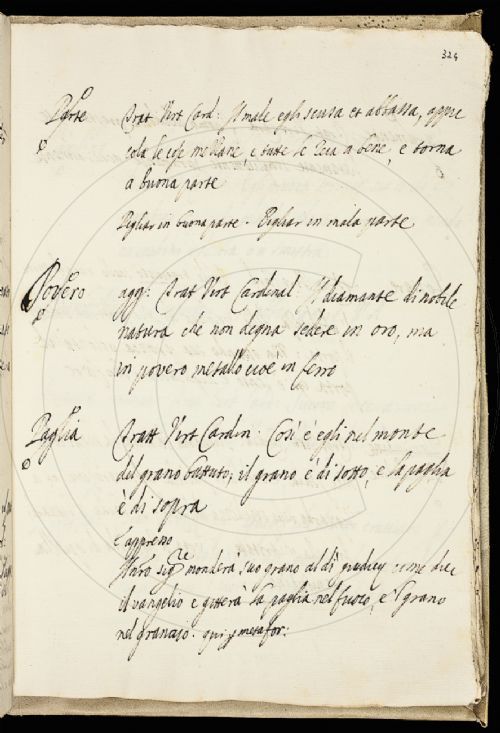 324
Parte Trat Virt Card: Il male egli scusa et abbassa, appic
cola le cose mezzane, e tutte le reca a bene, e torna
a buona parte
Pigliar in buona parte. Pigliar in mala parte
Povero agg: Trat Virt Cardenal. Il diamante di nobile
natura che non degna sedere in oro, ma
in povero metallo cioe in ferro
Paglia Tratt Virt Cardin: Così è egli nel monte
del grano battuto, il grano è di sotto, e la paglia
è di sopra
E appreno
Nrō sigre monderà suo grano al dì come dice
il vangelio e gitterà la paglia nel fuoco, e l grano
nel granaio. qui metafor: